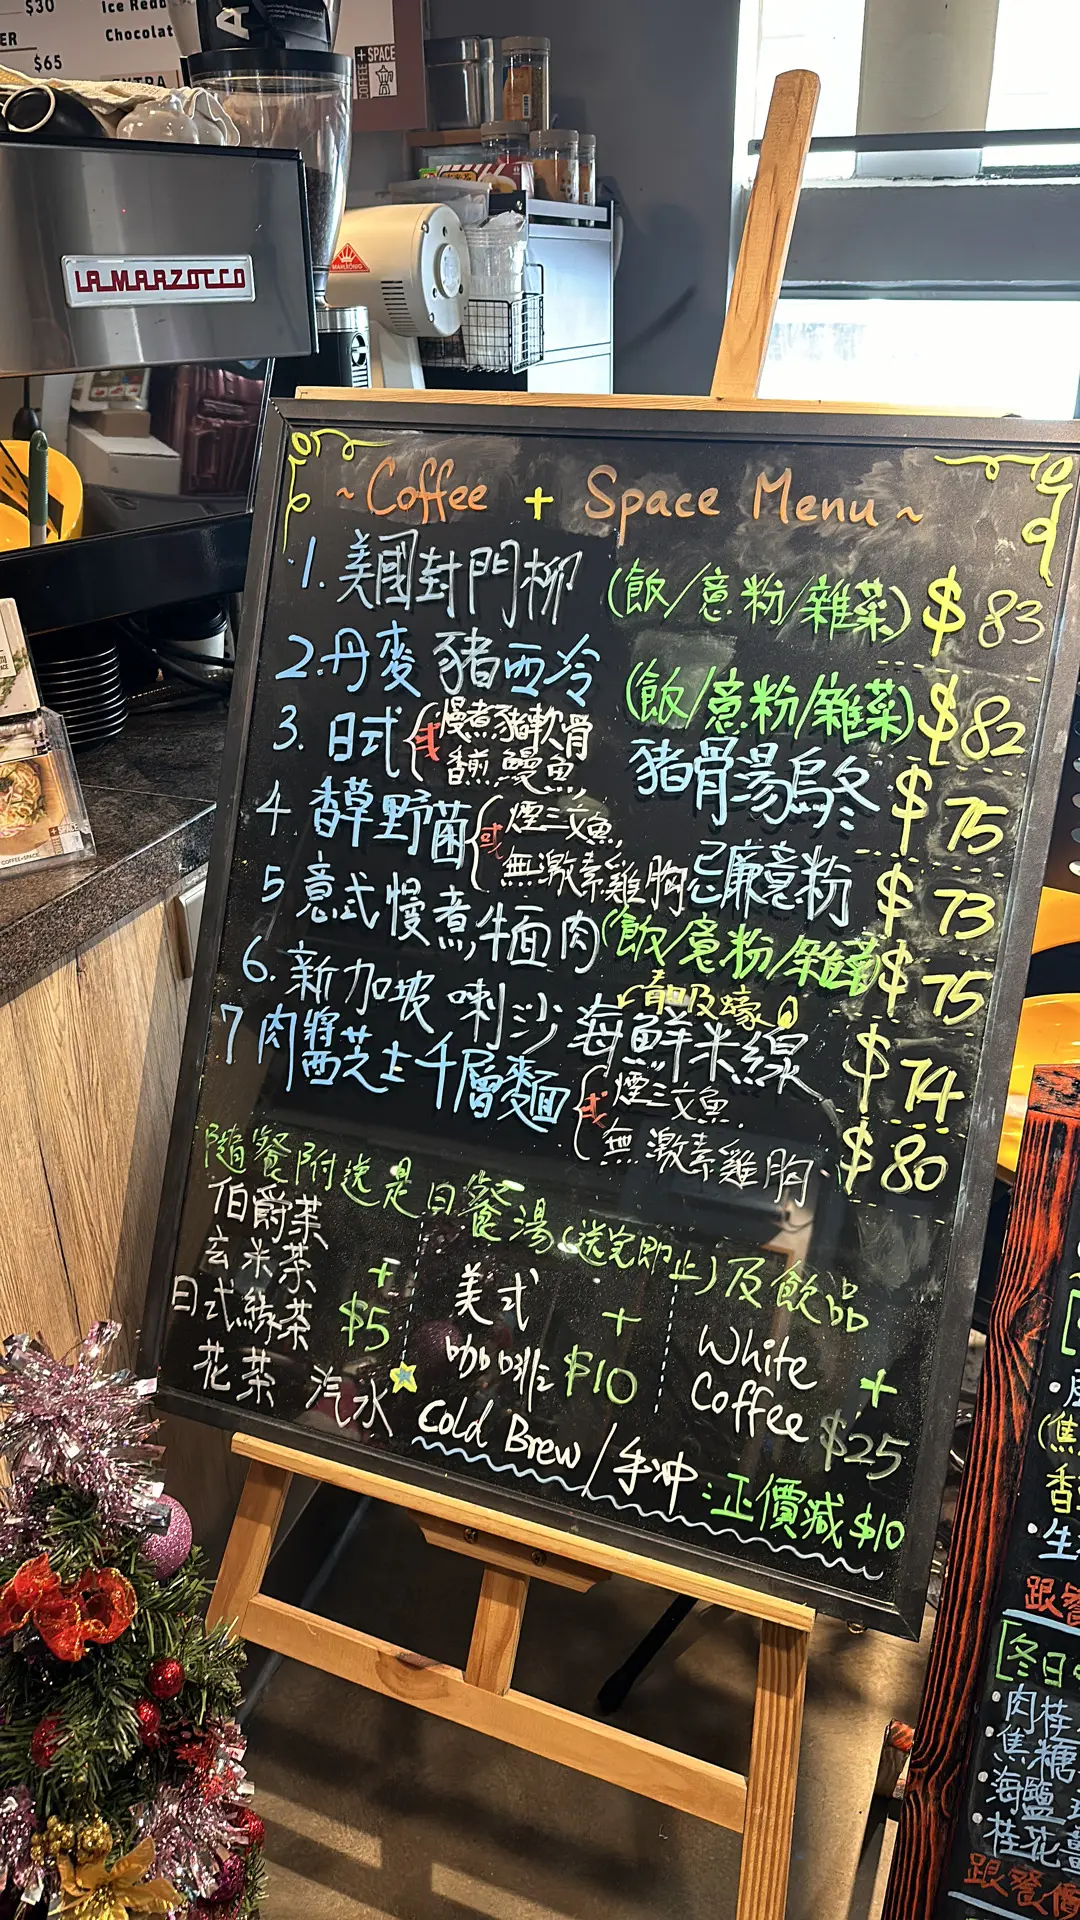 $30
Ice Redb
Chocolat
$65
EXTRA
COFFEE + SPACE
LA MARZOCCO
MAHLKÖNIG
~ Coffee + Space Menu ~
1. 美國封門柳 (飯/意粉/雜菜) $83
2. 丹麥豬西冷 (飯/意粉/雜菜) $82
3. 日式 或 慢煮豬軟骨 香煎鰻魚 豬骨湯烏冬 $75
4 香草野菌 或 煙三文魚 無激素雞胸 忌廉意粉 $73
5 意式慢煮牛面肉 (飯/意粉/雜菜) $75
6. 新加坡喇沙海鮮米線 $74
7 肉醬芝士千層麵 或 煙三文魚 無激素雞胸 $80
隨餐附送是日餐湯 (送完即止) 及飲品
伯爵茶
玄米茶
日式綠茶
花茶 汽水
+ $5
美式
咖啡 + $10
White
Coffee + $25
Cold Brew / 手冲 : 正價減 $10
COFFEE+SPACE
跟餐
冬日
肉桂
焦糖
海鹽
桂花薑
跟餐價